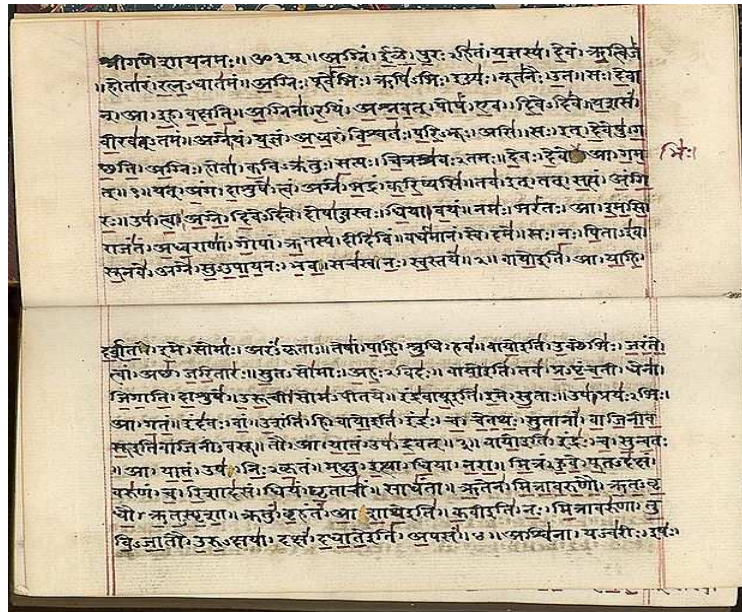 श्रीगणेशायनमः॥ ॐ३म्॥ अग्निं। ईळे। पुरःऽहितं। यज्ञस्य। देवं। ऋत्विजं
॥होतारं। रत्नऽधातमं॥ अग्निः। पूर्वेभिः। ऋषिऽभिः। ईड्यः। नूतनैः। उत॥ सः। देवा
न्। आ। इह। वक्षति॥ अग्निना। रयिं। अश्नवत्। पोषं। एव। दिवेऽदिवे॥ यशसं।
वीरवत्ऽतमं॥ अग्ने। यं। यज्ञं। अध्वरं। विश्वतः। परिऽभूः। असि॥ सः। इत्। देवेषु। ग
च्छति॥ अग्निः। होता। कविऽक्रतुः। सत्यः। चित्रश्रवःऽतमः॥ देवः। देवे। आ। गम
भिः।
त्॥१॥ यत्। अंग। दाशुषे। त्वं। अग्ने। भद्रं। करिष्यसि॥ तव। इत्। तत्। सत्यं। अंगि
रः॥ उप। त्वा। अग्ने। दिवेऽदिवे। दोषाऽवस्तः। धिया। वयं॥ नमः। भरंतः। आ। इमसि॥
राजंतं। अध्वराणां। गोपां। ऋतस्य। दीदिविं॥ वर्धमानं। स्वे। दमे॥ सः। नः। पिताऽइव।
सूनवे। अग्ने। सुऽउपायनः। भव॥ सचस्व। नः। स्वस्तये॥२॥ वायोइति। आ। याहि।
दर्शत। इमे। सोमाः। अरंऽकृताः॥ तेषां। पाहि। श्रुधि। हवं॥ वायोइति। उक्थेभिः। जरंते।
त्वां। अच्छ। जरितारः॥ सुतऽसोमाः। अहःऽविदः॥ वायोइति। तव। प्रऽपृंचती। धेना।
जिगाति। दाशुषे॥ उरूची। सोमऽपीतये॥ इंद्रवायूइति। इमे। सुताः॥ उप। प्रयःऽभिः।
आ। गतं॥ इंदवः। वां। उशंति। हि॥ वायोइति। इंद्रः। च। चेतथः। सुतानां। वाजिनीव
सूइतिवाजिनीवसू॥ तौ। आ। यातं। उप। द्रवत्॥३॥ वायोइति। इंद्रः। च। सुन्वतः
॥आ। यातं। उप। निःऽकृतं॥ मक्षु। इत्था। धिया। नरा॥ मित्रं। हुवे। पूतऽदक्षं।
वरुणं। च। रिशादसं॥ धियं। घृताचीं। साधंता॥ ऋतेन। मित्रावरुणौ। ऋतऽवृ
धौ। ऋतऽस्पृशा॥ क्रतुं। बृहंतं। आशाथेइति॥ कवीइति। नः। मित्रावरुणा। तु
विऽजातौ। उरुऽक्षया॥ दक्षं। दधातेइति। अपसं॥४॥ अश्विना। यज्वरीः। इषः।